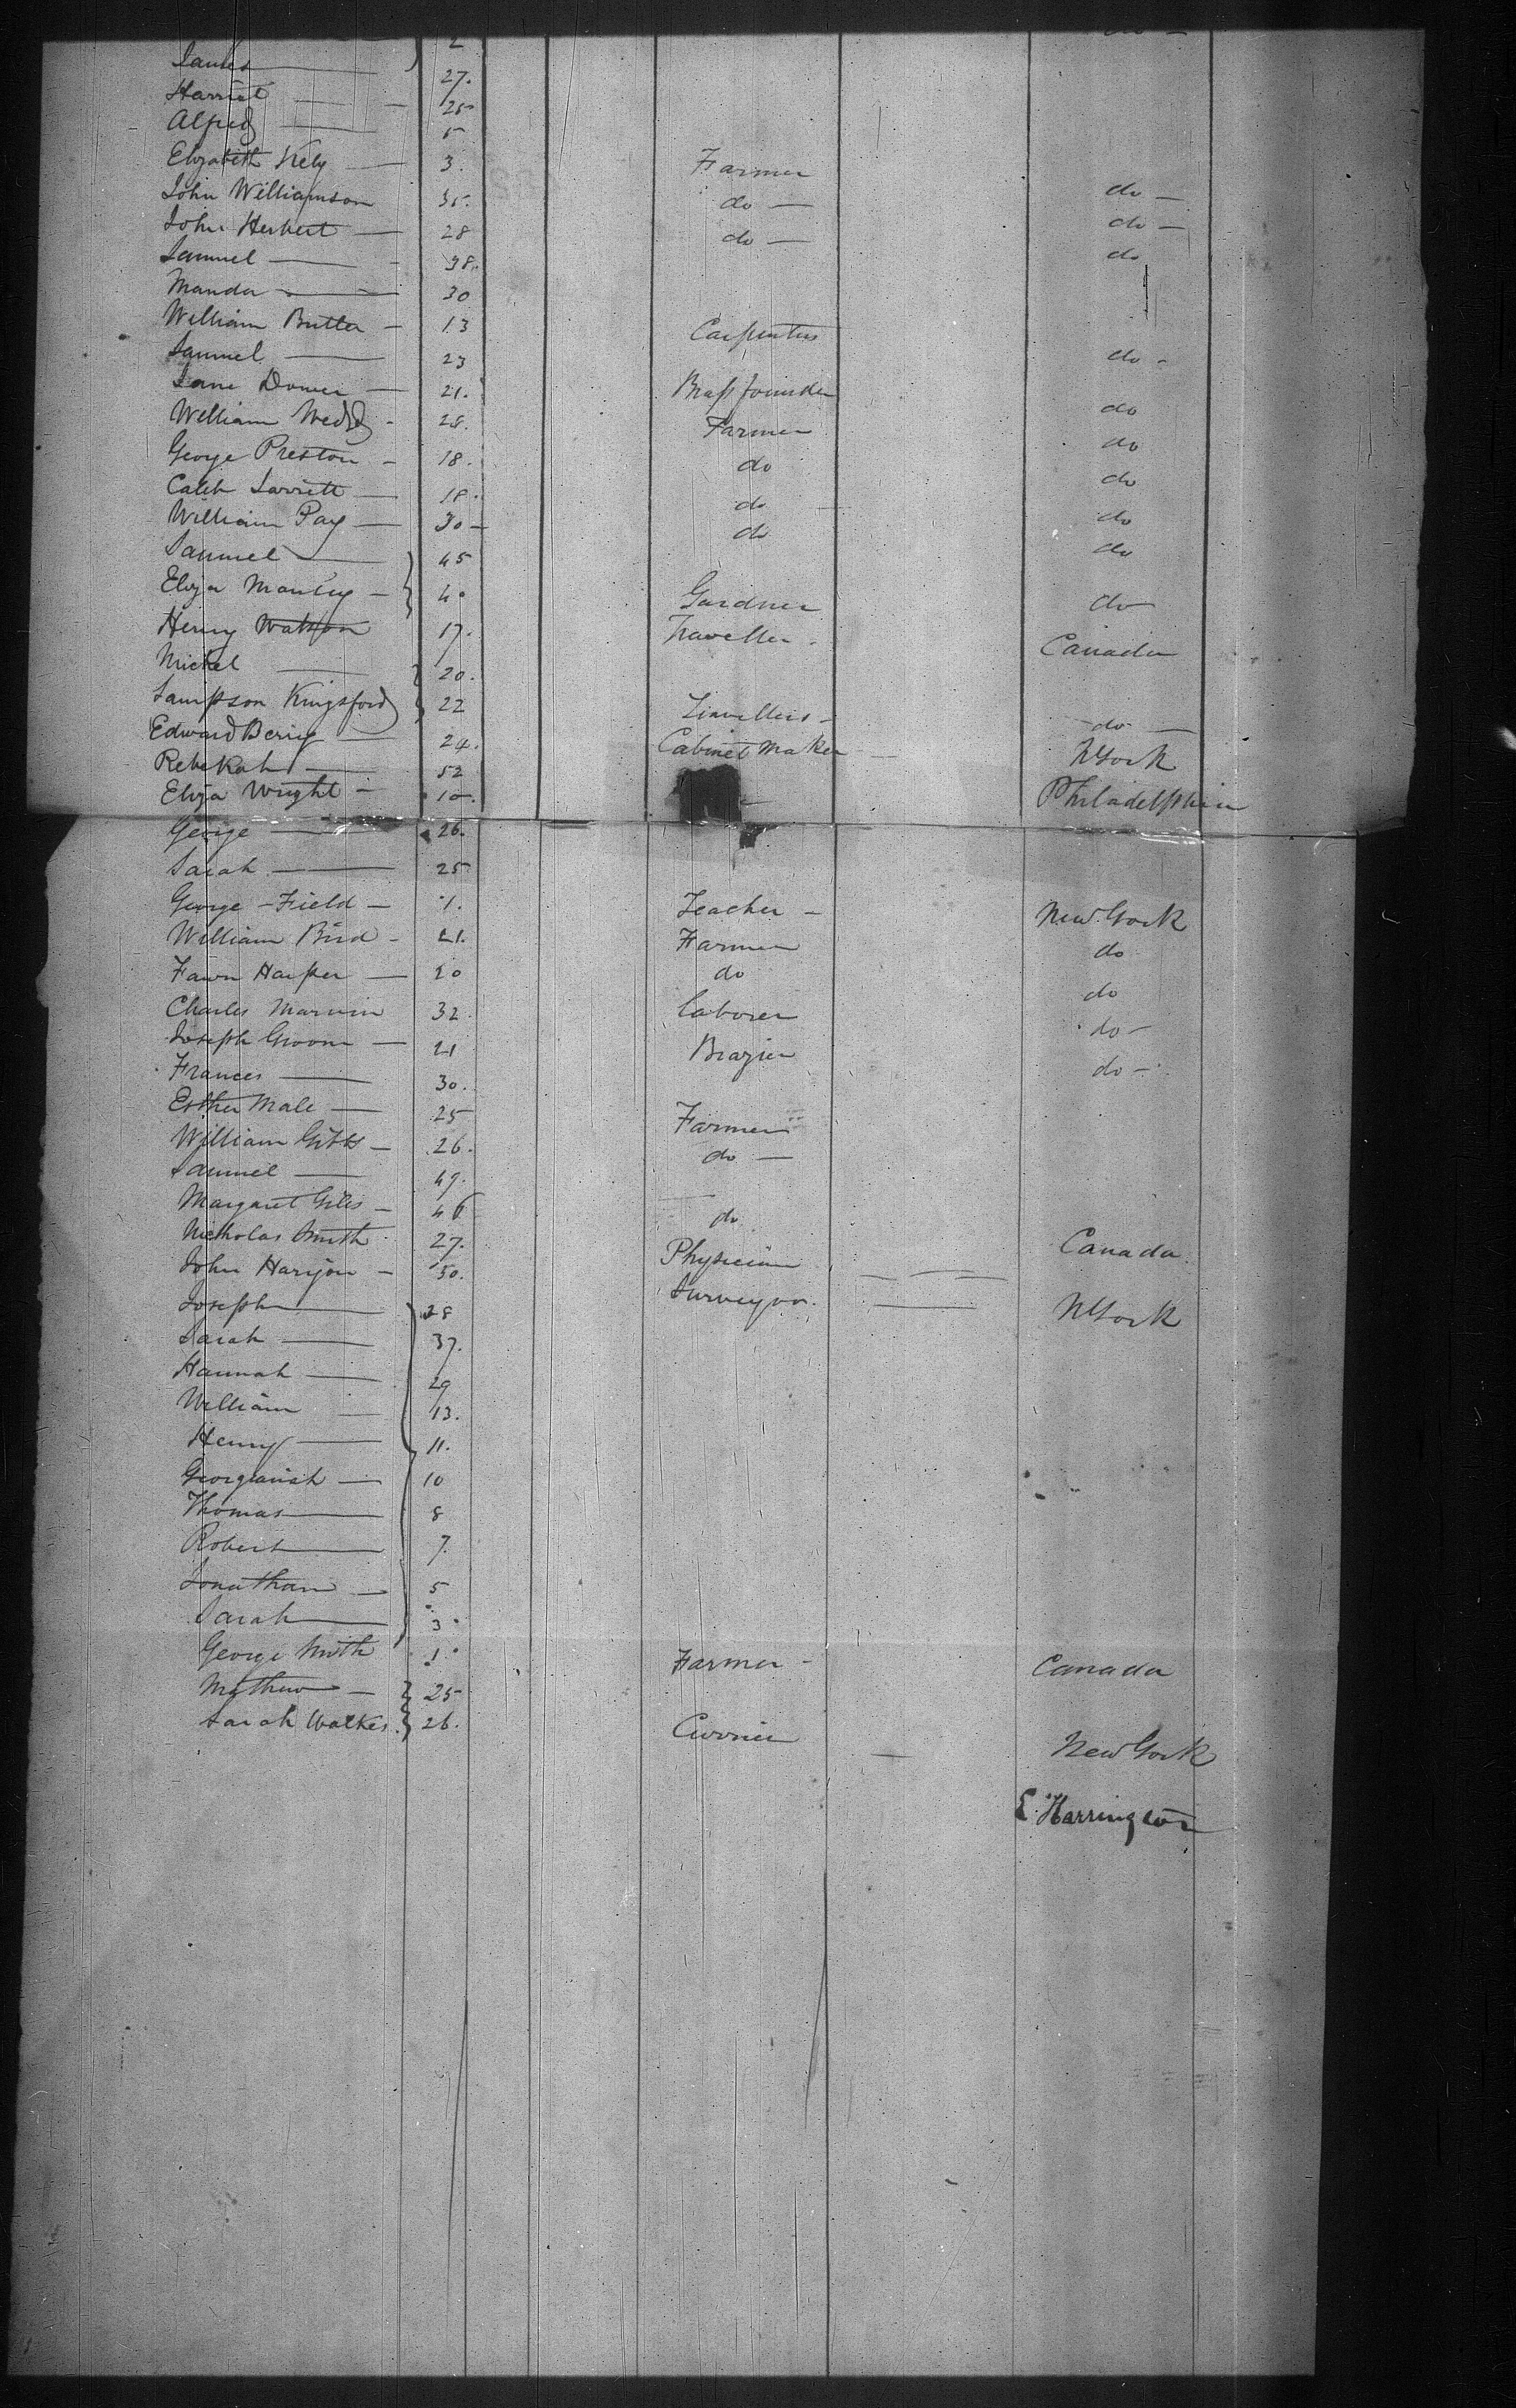 2 do —
James 27.
Harriet — 25
Alfred — 5
Elizabeth Kely — 3. Farmer
John Williamson 35. do — do —
John Herbert — 28 do — do —
Samuel — 38. do
Manda — 30
William Butler — 13 Carpenters
Samuel — 23 do -
Jane Dower — 21. Brassfounder
William Wedd - 28. Farmer do
George Preston - 18. do do
Caleb — 18. do do
William Pay — 30 — do do
Samuel — 45 do
Eliza Manley — 40 Gardner do
Henry Watson 17. Traveller. Canada
Michel — 20.
Sampson Kingsford 22 Travellers - do —
Edward — 24. Cabinet Maker NYork
Rebekah — 52
Eliza Wright — 10. — Philadelphia
George — 26.
Sarah — 25
George - Field — 1. Teacher — New York
William Bird - 21. Farmer do
Fawn Harper — 20 do do
Charles Marvin 32. laborer do -
Joseph Groom — 21 Brazier do -
Frances — 30.
Esther Male — 25 Farmer
William Gibbs — 26. do —
Samuel — 49.
Margaret Giles - 46 do
Nicholas Smith 27. Physician Canada
John - 50. Surveyor. NYork
Joseph — 28
Sarah — 37.
Hannah — 29
William — 13.
Henry — 11.
Georgianah — 10
Thomas — 8
Robert — 7.
Jonathan — 5
Sarah — 3
George Smith 1. Farmer - Canada
Mathew — 25
Sarah Walker. 26. Currier — New York
E. Harrington